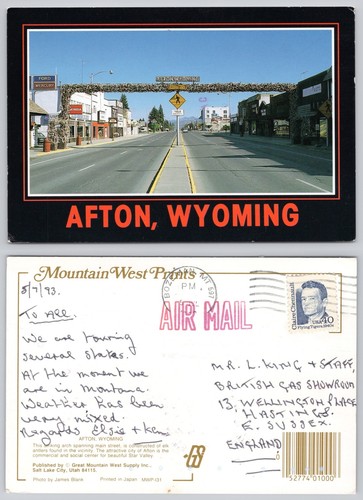 FORD
MERCURY
AFTON, WYOMING
Mountain West Prints
8/7/93.
To All.
We are touring
several states.
At the moment we
are in Montana.
Weather has been
very mixed.
Regards Elsie + Ken
BOZEMAN, MT 597
PM
AIR MAIL
Claire Chennault
Flying Tigers, 1940s
USA 40
MR. L. KING & STAFF,
BRITISH GAS SHOWROOM
13, WELLINGTON PLACE
HASTINGS.
E. SUSSEX.
ENGLAND
AFTON, WYOMING
This striking arch spanning main street, is constructed of elk
antlers found in the vicinity. The attractive city of Afton is the
commercial and social center for beautiful Star Valley.
Published by © Great Mountain West Supply Inc.,
Salt Lake City, Utah 84115.
Photo by James Blank
Printed in Japan
MWP131
52774 01000